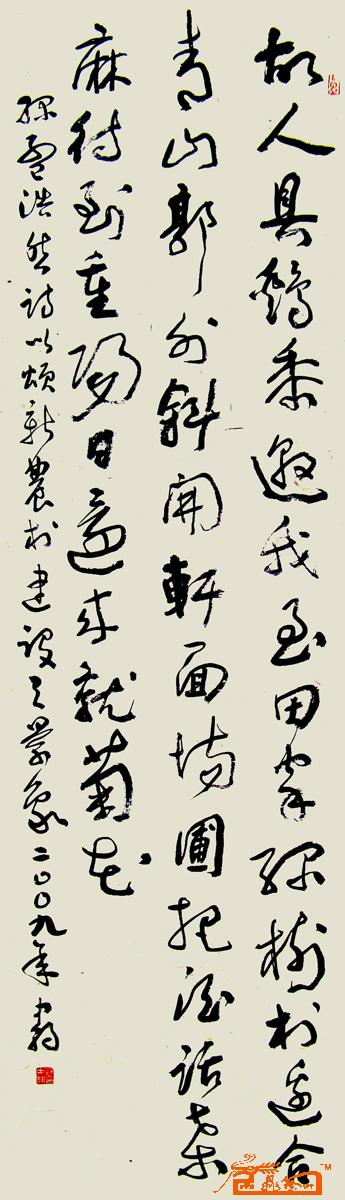 故人具鷄黍邀我至田家綠樹村邊合
青山郭外斜開軒面場圃把酒話桑
麻待到重陽日還來就菊花
孟浩然詩以頌新農村建設之景象二〇〇九年